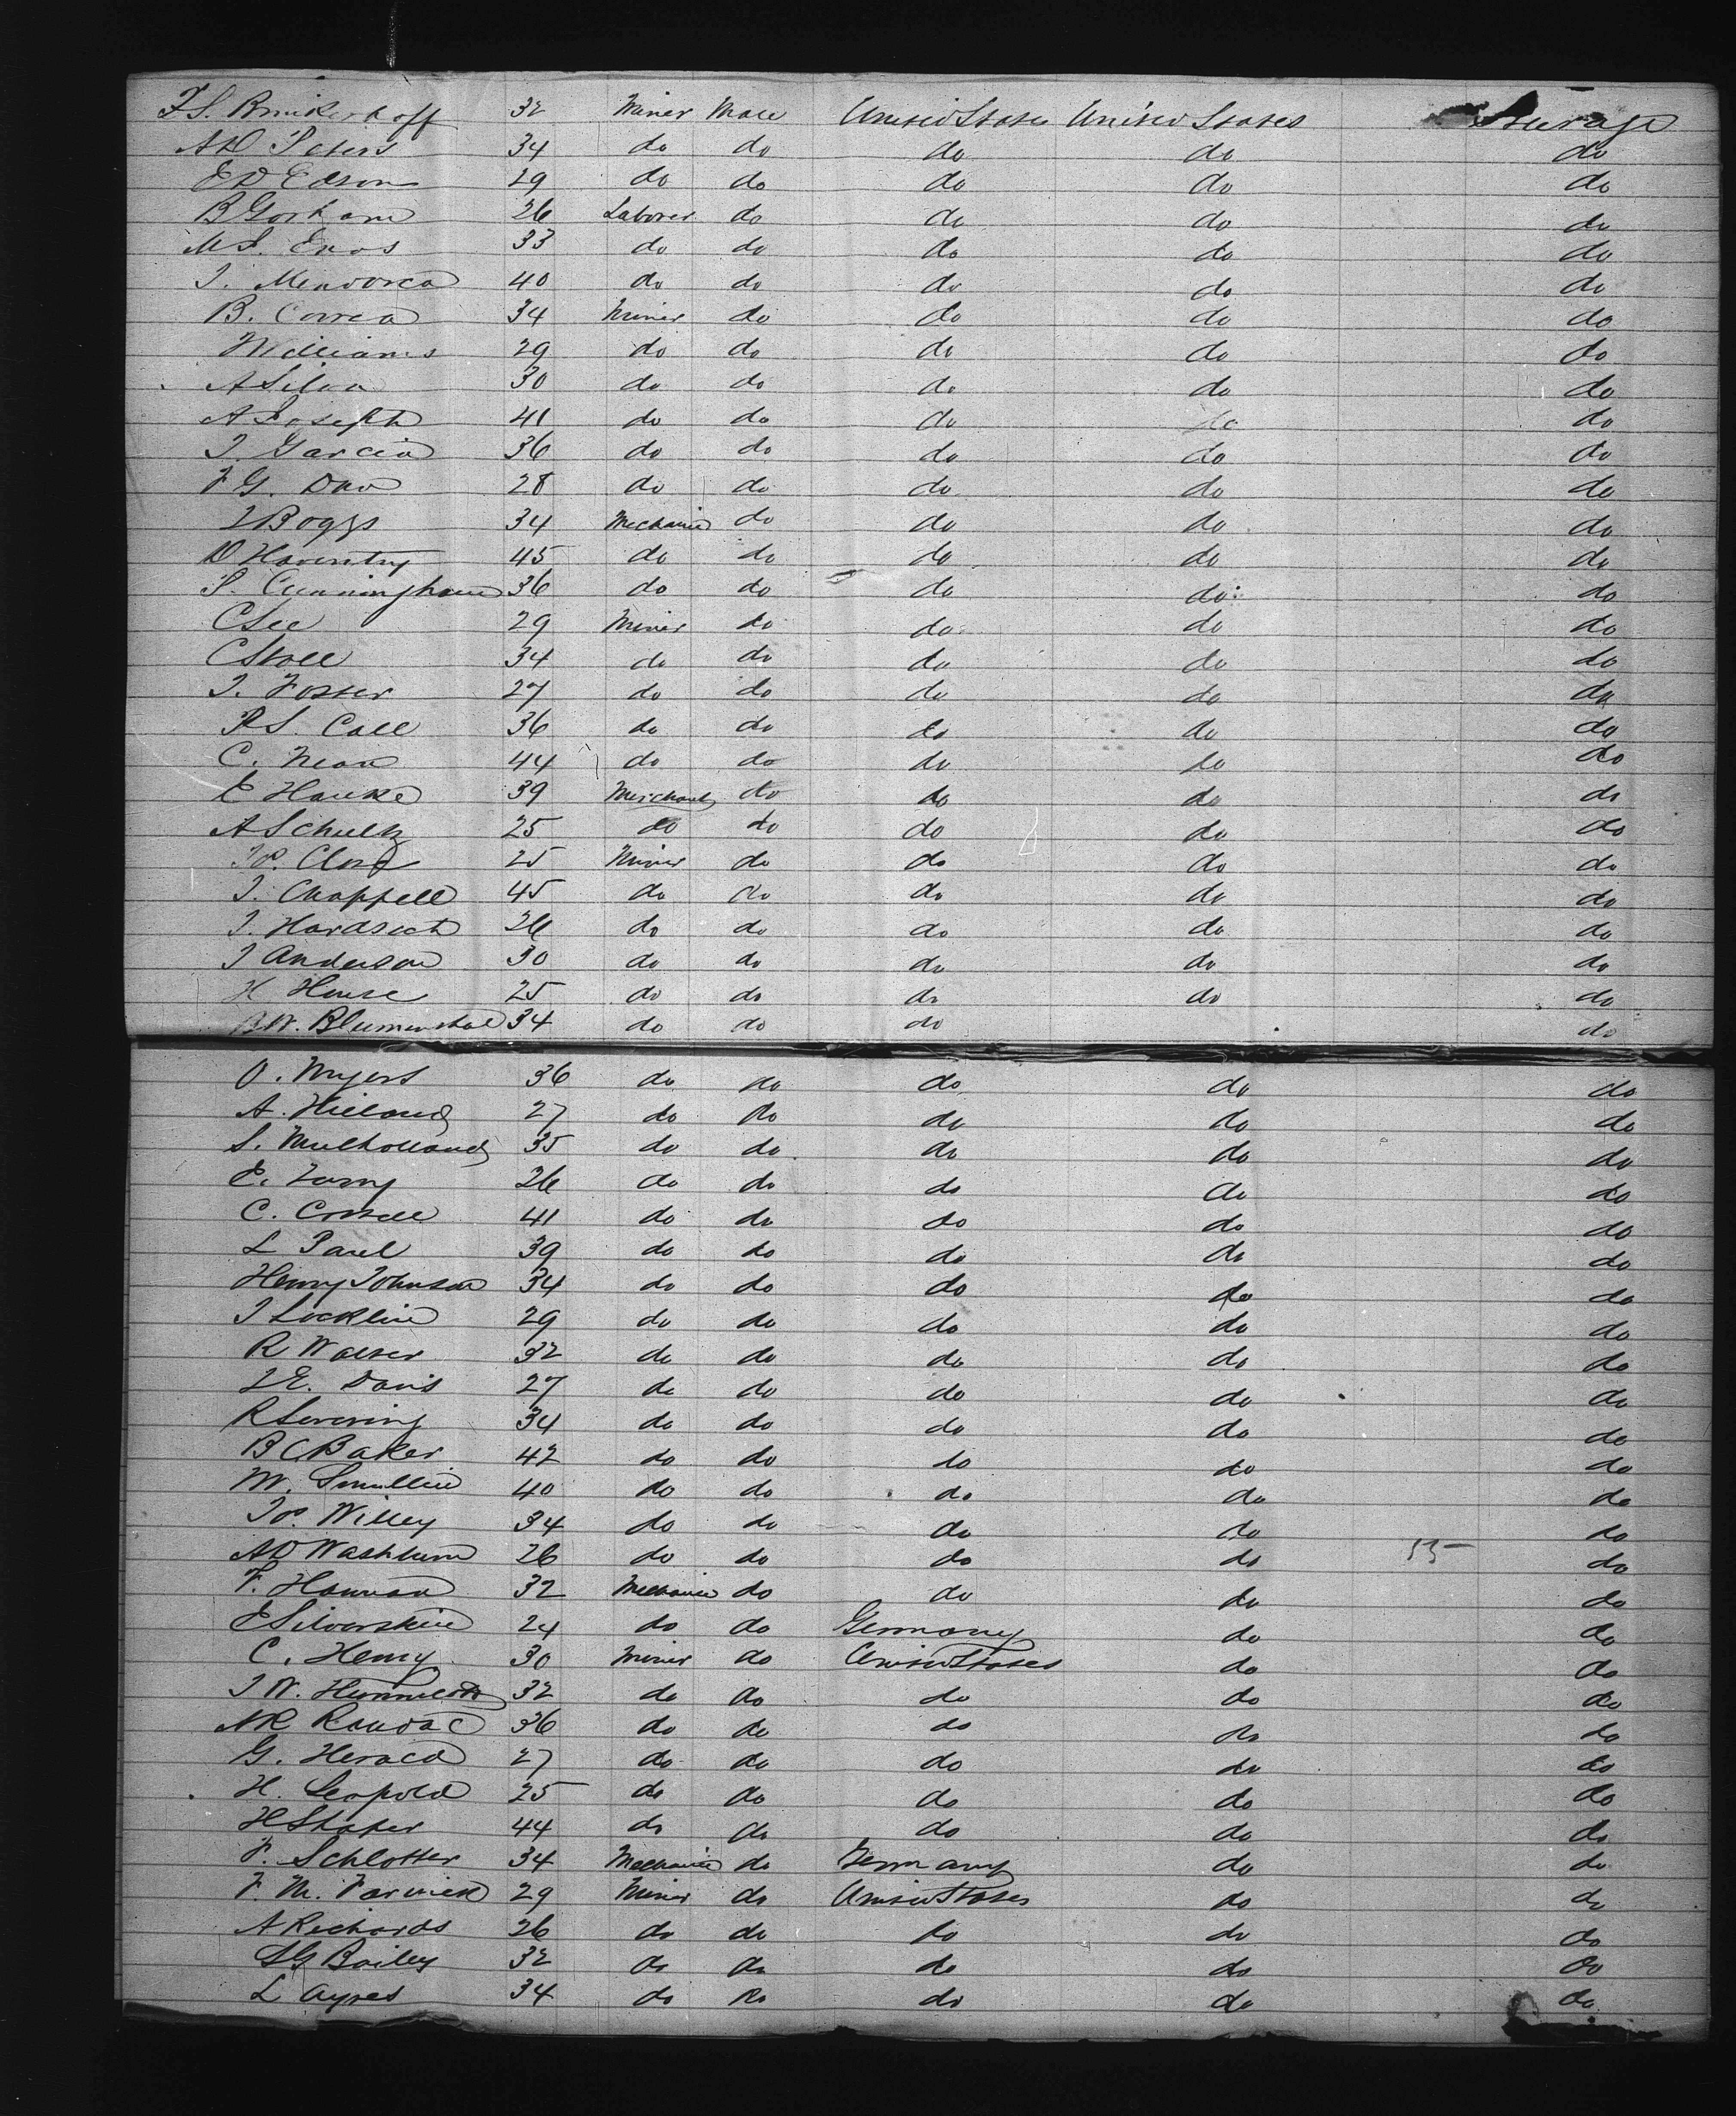 F S. Brinkerhoff 32 Miner Male United States United States Steerage
A D Peters 34 do do do do do
E D Edson 29 do do do do do
B Gorham 26 Laborer do do do do
M S. Enos 33 do do do do do
J. Mendorca 40 do do do do do
B. Correa 34 Miner do do do do
Williams 29 do do do do do
A Silva 30 do do do do do
A Joseph 41 do do do do do
J. Garcia 36 do do do do do
F G. Dow 28 do do do do do
L Boggs 34 Mechanic do do do do
D Haventry 45 do do do do do
S. Cunningham 36 do do do do do
C See 29 Miner do do do do
C Stoll 34 do do do do do
J. Foster 27 do do do do do
P S. Call 36 do do do do do
C. Mean 44 do do do do do
E Hauke 39 Merchant do do do do
A Schultz 25 do do do do do
J P. Clard 25 Miner do do do do
J. Chappell 45 do do do do do
J. Hardsech 26 do do do do do
J Anderson 30 do do do do do
H House 25 do do do do do
B W. Blumenthal 34 do do do do
O. Myers 36 do do do do do
A. Hieland 27 do do do do do
S. Mulholland 35 do do do do do
E. 26 do do do do do
C. 41 do do do do do
L Paul 39 do do do do do
Henry Johnson 34 do do do do do
J Locklin 29 do do do do do
R Walser 32 do do do do do
L E. Davis 27 do do do do do
R Severing 34 do do do do do
B C Baker 42 do do do do do
W. Smullin 40 do do do do do
J P. Willey 34 do do do do do
A D Washburn 26 do do do do 55 do
F. Hannan 32 Mechanic do do do do
E Silverskin 24 do do Germany do do
C. Henry 30 Miner do United States do do
J W. 32 do do do do do
N R 36 do do do do do
G. Herald 27 do do do do do
H. Leopold 25 do do do do do
H Slater 44 do do do do do
P. Schlotter 34 Mechanic do Germany do do
F. M. Farwick 29 Miner do United States do do
A Richards 26 do do do do do
S G Bailey 32 do do do do do
L Ayres 34 do do do do do